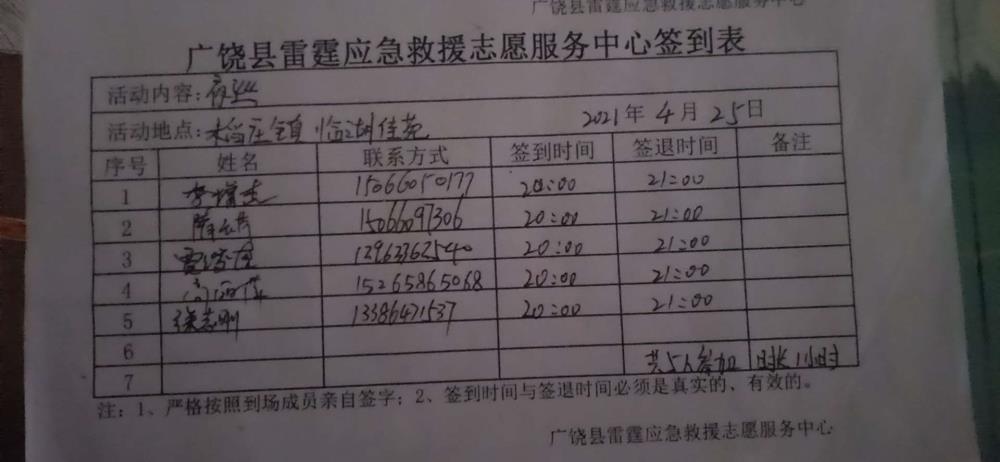 广饶县雷霆应急救援志愿服务中心
广饶县雷霆应急救援志愿服务中心签到表
活动内容:夜巡
活动地点:稻庄镇 临湖佳苑 2021年 4月 25日
序号 姓名 联系方式 签到时间 签退时间 备注
1 李增杰 15066050177 20:00 21:00
2 15066097306 20:00 21:00
3 20:00 21:00
4 15265865068 20:00 21:00
5 徐志刚 13386471537 20:00 21:00
6 共5人参加 时长1小时
7
注:1、严格按照到场成员亲自签字;2、签到时间与签退时间必须是真实的、有效的。
广饶县雷霆应急救援志愿服务中心